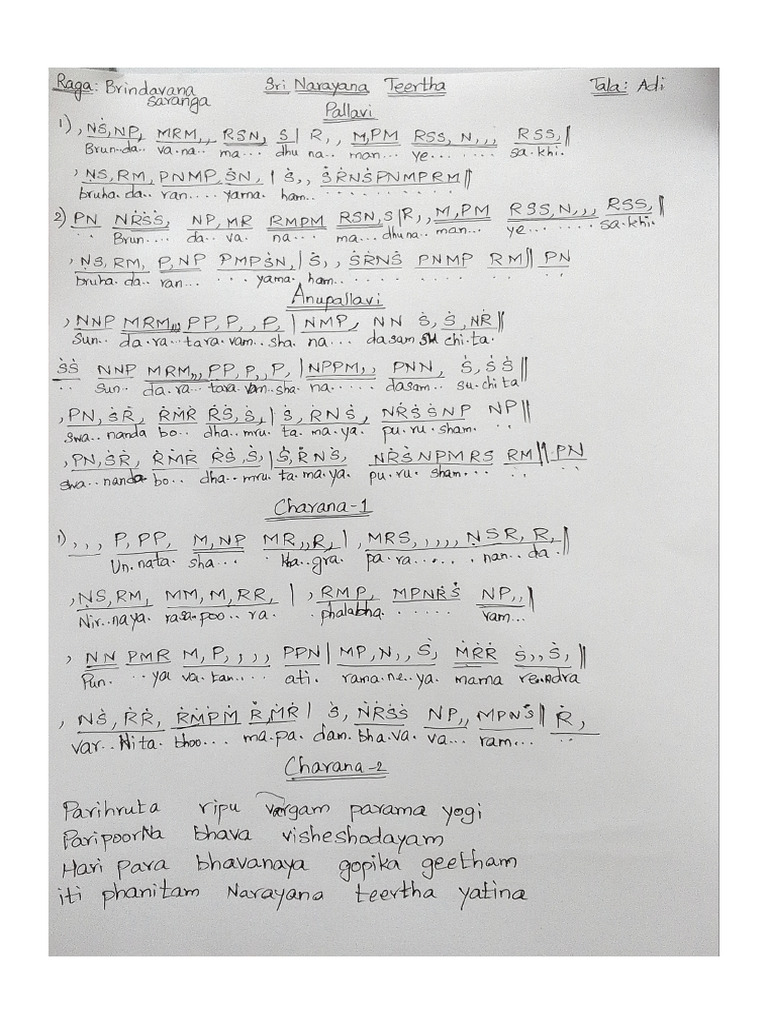 Raga: Brindavana Saranga Sri Narayana Teertha Tala: Adi
Pallavi
1) , ṆS, NP, MRM,, RSN, S | R,, M,PM RSS, N,,, RSS, ||
Brun..da.. va.na.. ma... dhu na.. man... ye... .... sa.khi.
, ṆS, RM, PNMP, ṠN, | Ṡ,, ṠṘNṠPNMPRM ||
bruha.da.. ran.... yama. ham.. ..........
2) PN NṘṠṠ, NP, MR RMPM RSN,S | R,, M,PM RSS,N,,, RSS, ||
.. Brun.... da.. va. na.... ma..dhu na.. man... ye... .... sa.khi.
, ṆS, RM, P,NP PMPṠN, | Ṡ,, ṠṘNṠ PNMP RM || PN
bruha.da.. ran... ...yama. ham.. .... .... .. ..
Anupallavi
, NNP MRM,,, PP, P,, P, | NMP, NN Ṡ, Ṡ, NṘ ||
Sun.. da.ra...tara.vam..sha. na... dasam su chi.ta.
ṠṠ NNP MRM,, PP, P,, P, | NPPM,, PNN, Ṡ, ṠṠ ||
.. Sun.. da.ra...tara.vam.sha. na..... dasam.. su.chi ta
, PN, ṠṘ, ṘṀṘ ṘṠ, Ṡ, | Ṡ, ṘNṠ, NṘṠṠNP NP ||
swa.. nanda bo.. dha..mru. ta.ma.ya. pu.ru.sham. ..
, PN, ṠṘ, ṘṀṘ ṘṠ, Ṡ, | Ṡ, ṘNṠ, NṘṠNPMRS RM || PN
swa.. nanda bo.. dha..mru. ta.ma.ya. pu.ru sham... .. ..
Charana-1
1) , , , P, PP, M, NP MR,,R, | ,MRS,,,,, ṆSR, R, ||
Un.nata. sha... Ha..gra. pa.ra....... nan..da.
, ṆS, RM, MM, M, RR, | , RMP, MPNṘṠ NP,, ||
Nir..naya. rasa.poo..ra. phalabha. ..... ram...
, NN PMR M, P, , , , PPN | MP, N,, Ṡ, ṀṘṘ Ṡ,,Ṡ, ||
Pun. ..ya va.tan.... ati. rama.ne..ya. mama rendra
, NṠ, ṘṘ, ṘṀṖṀ Ṙ,ṀṘ | Ṡ, NṘṠṠ NP,, MPNṠ || Ṙ,
var..Nita. bhoo... ma.pa. dam.bha.va. va... ram... ..
Charana-2
Parihruta ripu vargam parama yogi
ParipoorNa bhava visheshodayam
Hari para bhavanaya gopika geetham
iti phanitam Narayana teertha yatina